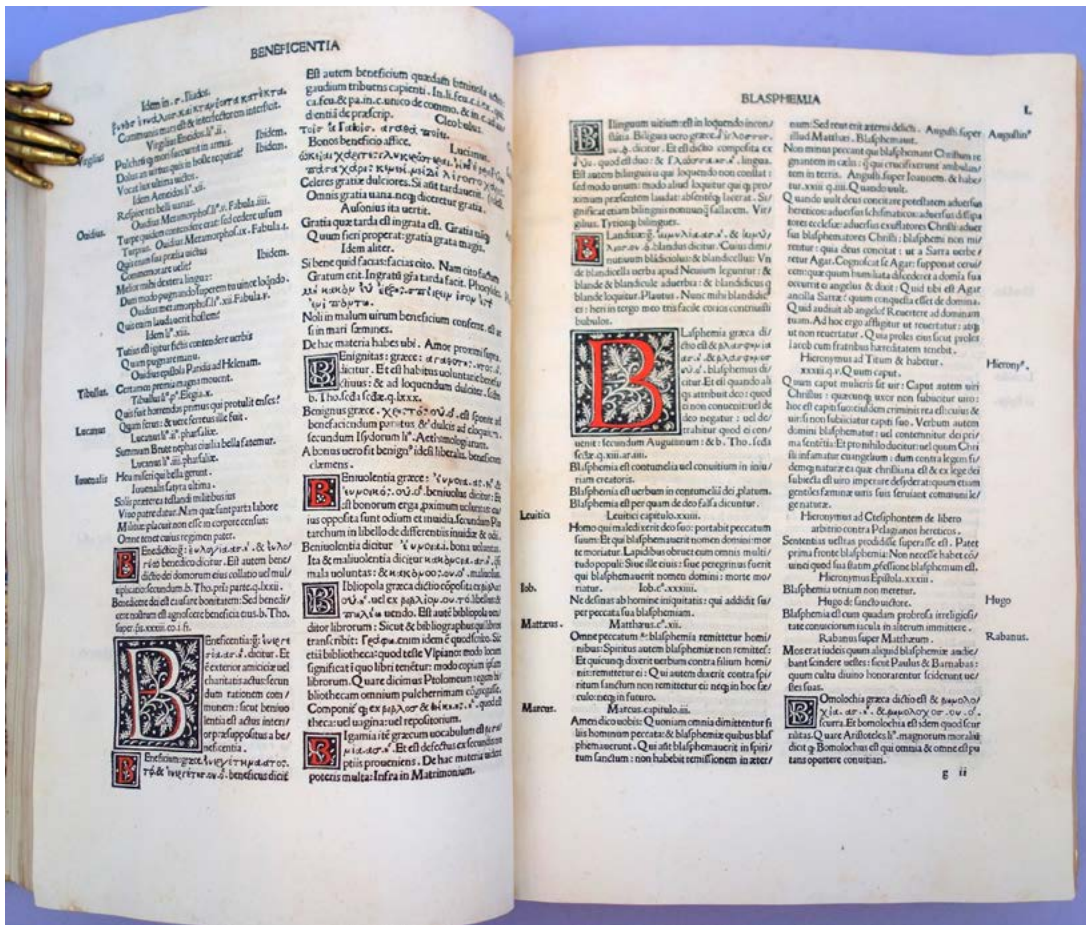 BENEFICENTIA
Idem in .r. Iliados.
Communis mars est & interfectorem interficit.
Virgilius
Virgilius Eneidos li°.ii. Ibidem.
Pulchrū q; mori succurrit in armis.
Dolus an uirtus quis in hoste requirat? Ibidem.
Vocat lux ultima uictos.
Idem Aeneidos li°.xii.
Respice res belli uarias.
Ouidius
Ouidius Metamorfo.li°.v. Fabula.iiii.
Turpe quidem contendere erat: sed cedere uisum
Turpius. Ouidius Metamorfo.ix. Fabula.i.
Ibidem.
Commemorare uelit?
Melior mihi dextera lingua:
Dum modo pugnando superem tu uince loquēdo.
Ouidius metamorphos.li°.xii.Fabula.v.
Quis enim laudauerit hostem?
Idem li°.xiii.
Tutius est igitur fictis contendere uerbis
Quam pugnare manu.
Ouidius epistola Paridis ad Helenam.
Tibullus.
Certamen præmia magna mouent.
Tibullus li°.p°. Elegia.x.
Quis fuit horrendos primus qui protulit enses?
Quam ferus: & uere ferreus ille fuit.
Lucanus
Lucanus li°.ii°. pharsaliæ.
Summum Brute nephas ciuilia bella fatemur.
Lucanus li°.iiii.pharsaliæ.
Heu miseri qui bella gerunt.
Iuuenalis
Iuuenalis satyra ultima.
Solis præterea testandi militibus ius
Viuo patre datur. Nam quæ sunt parta labore
Militiæ placuit non esse in corpore census:
Omne tenet cuius regimen pater.
Benedictio: εὐλογία.ασ.ἡ. & εὐλο/
benedico dicitur. Est autem bene/
dictio dei donorum eius collatio uel mul/
tiplicatio:secundum.b. Tho.pria parte.q.lxxii.
Benedicere dei est effusare bonitatem: Sed benedi/
cere nostrum est agnoscere beneficia eius.b. Tho.
super.ps.xxxiii.co.i.fi.
Beneficentia
dicitur. Et
ē exterior amiciciæ uel
charitatis actus:secun
dum rationem com/
munem: sicut beniuo
lentia est actus interi/
or præsuppositus a be/
neficentia.
Beneficium:græce
beneficus dicit
Est autem beneficium quædam beniuola actio
gaudium tribuens capienti.
Citobulus.
Bonos beneficio affice.
Lucianus.
Celeres gratiæ dulciores. Si aūt tardauerit
Omnis gratia uana.neq; dicetur gratia.
Ausonius ita uertit.
Gratia quæ tarda est ingrata est. Gratia namq;
Quum fieri properat: gratia grata magis.
Idem aliter.
Si bene quid facias:facias cito. Nam cito factum
Gratum erit. Ingratū gr̄a tarda facit. Phocylides
Noli in malum uirum beneficium conferre. est ac
si in mari sæmines.
De hac materia habes ubi. Amor proximi supra.
Benignitas: græce:
dicitur. Et est habitus uoluntarie benefa
ctiuus: & ad loquendum dulciter.
b. Tho.scda scdæ.q.lxxx.
Benignus græce. est sponte ad
benefaciendum paratus & dulcis ad eloquium
secundum Isydorum li°. Aethimologiarum.
A bonus uero fit benign° idest liberalis, beneficus
clæmens.
Beniuolentia græce:
beniuolus dicitur. Et
est bonorum erga .pximum uoluntas: cu/
ius opposita sunt odium et inuidia.secundum Plu
tarchum in libello de differentiis inuidiæ & odii.
Beniuolentia dicitur bona uoluntas.
Ita & maliuolentia dicitur
mala uoluntas: & maliuolus.
Bibliopola græca dictio cōposita ex
libellus &
uendo. Est autē bibliopola uen
ditor librorum: Sicut & bibliographus qui libros
transcribit: enim idem ē quod scribo. Sic
etii bibliotheca: quod teste Vlpiano: modo locum
significat ī quo libri tenētur: modo copiam ipsam
librorum. Quare dicimus Ptolomeum regem bi/
bliothecam omnium pulcherrimam cōgregasse.
Componit° q; ex βιβλοσ & quod est
theca: uel uagina: uel repositorium.
Bigamia itē græcum uocabulum est
Et est defectus ex secundis nu
ptiis proueniens. De hac materia uidere
poteris multa: Infra in Matrimonium.
BLASPHEMIA
L.
Bilinguum uitium: est in loquendo incon/
stātia. Biliguis uero græce
dicitur. Et est dictio composita ex
quod est duo: & lingua.
Est autem bilinguis is qui loquendo non constat:
sed modo unum: modo aliud loquitur qui q; pro/
ximum præsentem laudat: absentēq; lacerat. Si/
gnificat etiam bilinguis nonnunq̄ fallacem. Vir/
gilius. Tyriosq; bilingues.
Blanditia
blandus dicitur. Cuius dimi/
nutiuum blādiciolus: & blandicellus: Vn
de blandicella uerba apud Neuium leguntur: &
blande & blandicule aduerbia: & blandidicus q
blande loquitur. Plautus. Nunc mihi blandidic°
es: heri in tergo meo tris facile corios contriuisti
bubulos.
Blasphemia græca di/
ctio est & βλασφημια
.ασ.ἡ. & βλασφημοσ
.ου.ὁ. blasphemus di/
citur. Et est quando ali
qs attribuit deo: quod
ei non conuenit: uel de
deo negatur: uel de/
trahitur quod ei con/
uenit: secundum Augustinum: & b. Tho. scda
scdæ.q.xiii.ar.iii.
Blasphemia est contumelia uel conuitium in iniu/
riam creatoris.
Blasphemia est uerbum in contumeliā dei .platum.
Blasphemia est per quam de deo falsa dicuntur.
Leuitici
Leuitici capitulo.xxiiii.
Homo qui maledixerit deo suo: portabit peccatum
suum: Et qui blasphemauerit nomen domini: mor
te moriatur. Lapidibus obruet eum omnis multi/
tudo populi: Siue ille ciuis: siue peregrinus fuerit
qui blasphemauerit nomen domini: morte mo/
riatur.
Iob.
Iob.c°.xxxiiii.
Ne desinas ab homine iniquitatis: qui addidit su/
per peccata sua blasphemiam.
Mattæus.
Matthæus.c°.xii.
Omne peccatum & blasphemia remittetur homi/
nibus: Spiritus autem blasphemiæ non remittet:
Et quicunq; dixerit uerbum contra filium homi/
nis: remittetur ei: Qui autem dixerit contra spi/
ritum sanctum non remittetur ei: neq; in hoc sæ/
culo: neq; in futuro.
Marcus.
Marcus.capitulo.iii.
Amen dico uobis: Quoniam omnia dimittentur fi
liis hominum peccata: & blasphemiæ quibus blas/
phemauerunt. Qui aūt blasphemauerit in spiri/
tum sanctum: non habebit remissionem in æter/
num: Sed reus erit æterni delicti. Augusti. super
Augustin°
illud Matthæi. Blasphemauit.
Non minus peccant qui blasphemant Christum re
gnantem in cælis: q̄ qui crucifixerunt ambulan/
tem in terris. Augusti. super Ioannem. & habe/
tur.xxiii q.iiii.Quando uult.
Quando uult deus concitare potestatem aduersus
hereticos: aduersus schismaticos: aduersus dissipa
tores ecclesiæ: aduersus exufflatores Christi: aduer
sus blasphematores Christi: blasphemi non mi/
rentur: quia deus concitat: ut a Sarra uerbe/
retur Agar.Cognoscat se Agar: supponat cerui/
cem: quæ quum humiliata discederet a domīa sua
occurrit ei angelus & dixit: Quid tibi est Agar
ancilla Sarræ? quum conquesta esset de domina.
Quid audiuit ab angelo? Reuertere ad dominam
tuam. Ad hoc ergo affligitur ut reuertatur: atq;
ut non reuertatur. Quia proles eius sicut proles
Iacob cum fratribus hæreditatem tenebit.
Hieronymus ad Titum & habetur.
Hierony°.
xxxiii.q.v.Quum caput.
Quum caput mulieris sit uir: Caput autem uiri
Christus: quæcunq; uxor non subiicitur uiro:
hoc est capiti suo: eiusdem criminis rea est: cuius &
uir: si non subiiciatur capiti suo. Verbum autem
domini blasphematur: uel contemnitur dei pri/
ma sentētia: Et pro nihilo ducitur: uel quum Chri
sti infamatur euangelium: dum contra legem fi/
demq; naturæ ea quæ christiana est & ex lege dei
subiecta est uiro imperare desyderat: quum etiam
gentiles fœminæ uiris suis seruiant communi le/
ge naturæ.
Hieronymus ad Ctesiphontem de libero
arbitrio contra Pelagianos hereticos.
Sententias uestras prodidisse superasse est. Patet
prima fronte blasphemia: Non necesse habet cō/
uinci quod sua statim .pfessione blasphemum est.
Hieronymus Epistola.xxxiii.
Blasphemia ueniam non meretur.
Hugo
Hugo de sancto uictore.
Blasphemia est cum quadam probrosa irreligiosi/
tate conuiciorum iacula in alterum immittere.
Rabanus.
Rabanus super Matthæum.
Mos erat iudeis quum aliquid blasphemiæ audie/
bant scindere uestes: sicut Paulus & Barnabas:
quum cultu diuino honorarentur sciderunt ue/
stes suas.
Bomolochia græca dictio est &
scurra. Et bomolochia est idem quod scur
rilitas. Quare Aristoteles li°. magnorum moraliū
dicit q; Bomolochus est qui omnia & omne est pu
tans oportere conuitiari.
g ii